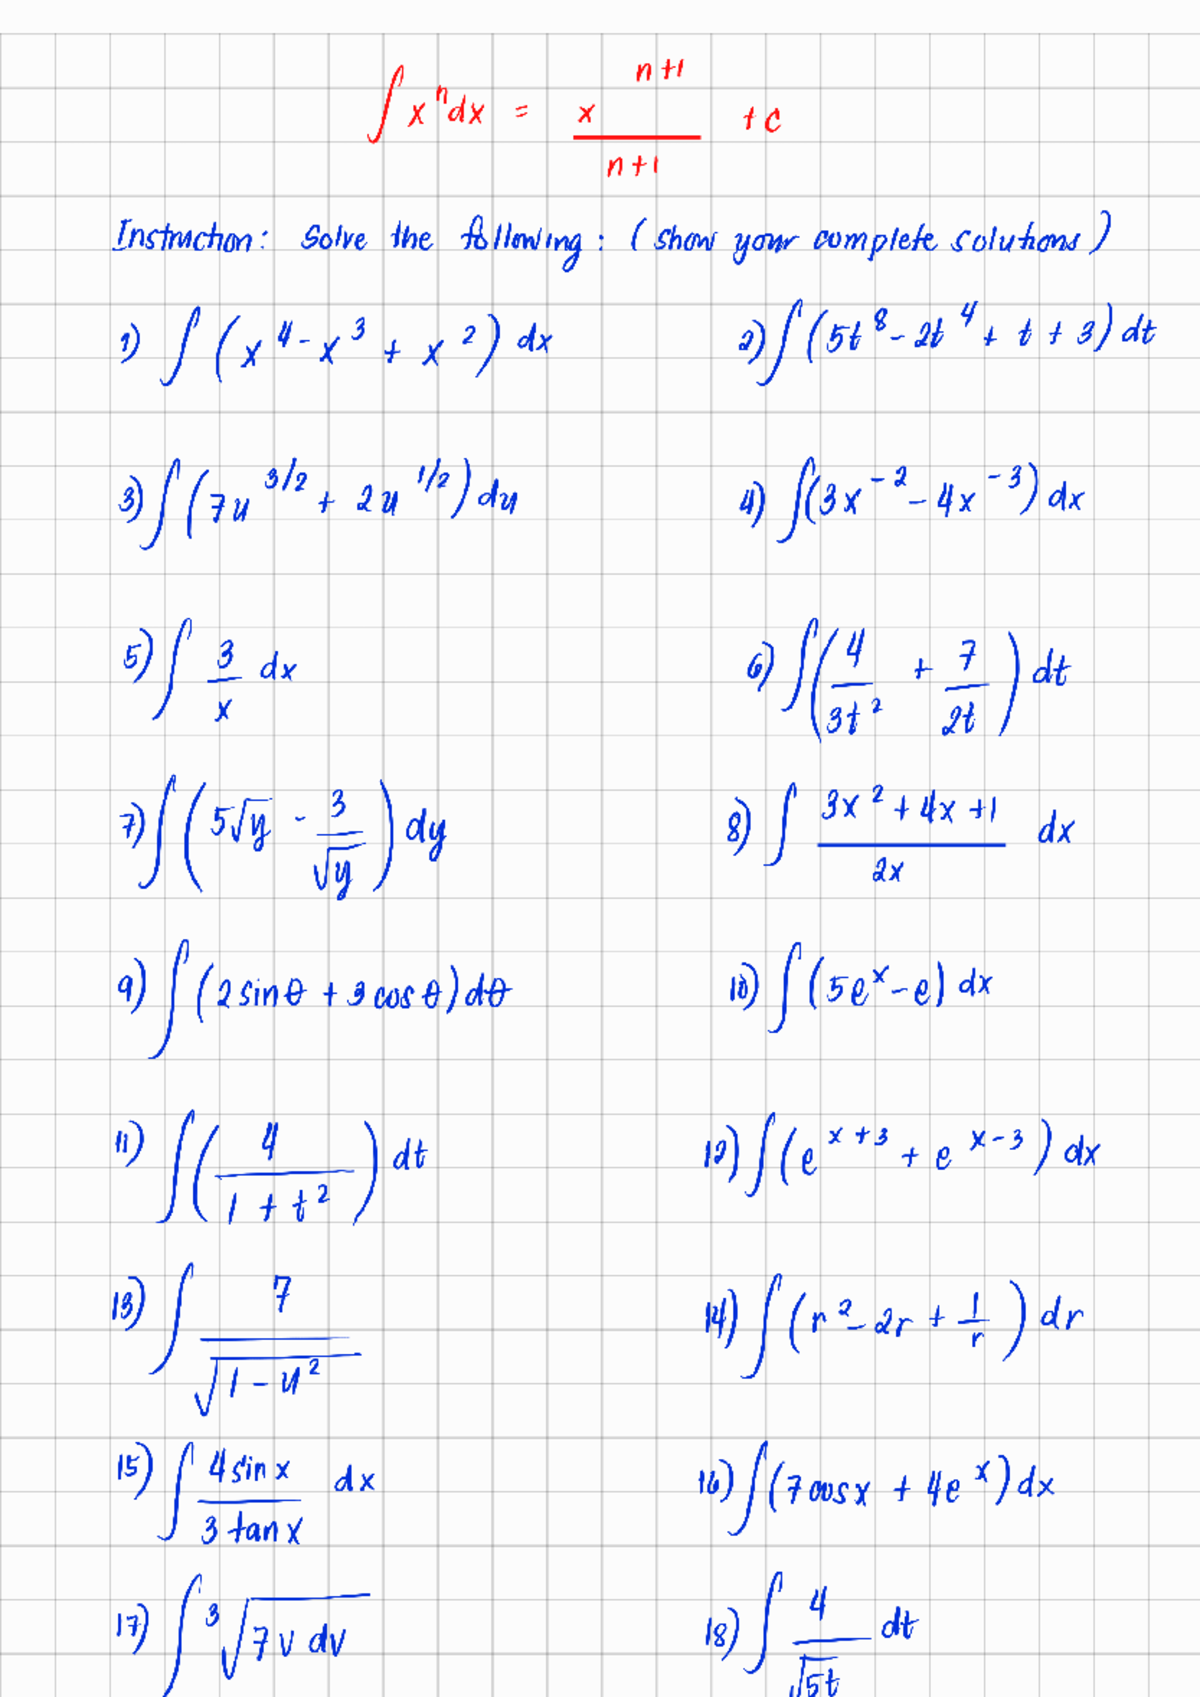 ∫ xⁿ dx = x^(n+1) / (n+1) + c
Instruction: Solve the following: (show your complete solutions)
1) ∫ (x⁴ - x³ + x²) dx
2) ∫ (5t⁸ - 2t⁴ + t + 3) dt
3) ∫ (7u^(3/2) + 2u^(1/2)) du
4) ∫ (3x⁻² - 4x⁻³) dx
5) ∫ 3/x dx
6) ∫ (4/3t² + 7/2t) dt
7) ∫ (5√y - 3/√y) dy
8) ∫ (3x² + 4x + 1)/2x dx
9) ∫ (2 sin θ + 3 cos θ) dθ
10) ∫ (5eˣ - e) dx
11) ∫ (4/(1 + t²)) dt
12) ∫ (e^(x+3) + e^(x-3)) dx
13) ∫ 7/√(1 - u²)
14) ∫ (r² - 2r + 1/r) dr
15) ∫ 4 sin x / 3 tan x dx
16) ∫ (7 cos x + 4eˣ) dx
17) ∫ ³√(7v dv)
18) ∫ 4/√5t dt